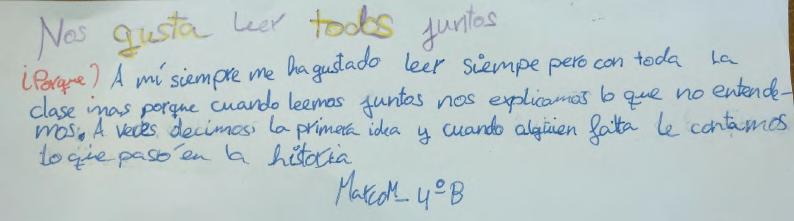 Nos gusta leer todos juntos
¿Porque? A mí siempre me ha gustado leer siempe pero con toda la
clase mas porque cuando leemos juntos nos explicamos lo que no entende-
mos. A veces decimos la primera idea y cuando alguien falta le contamos
lo que pasó en la historia
Marco M_ 4º B